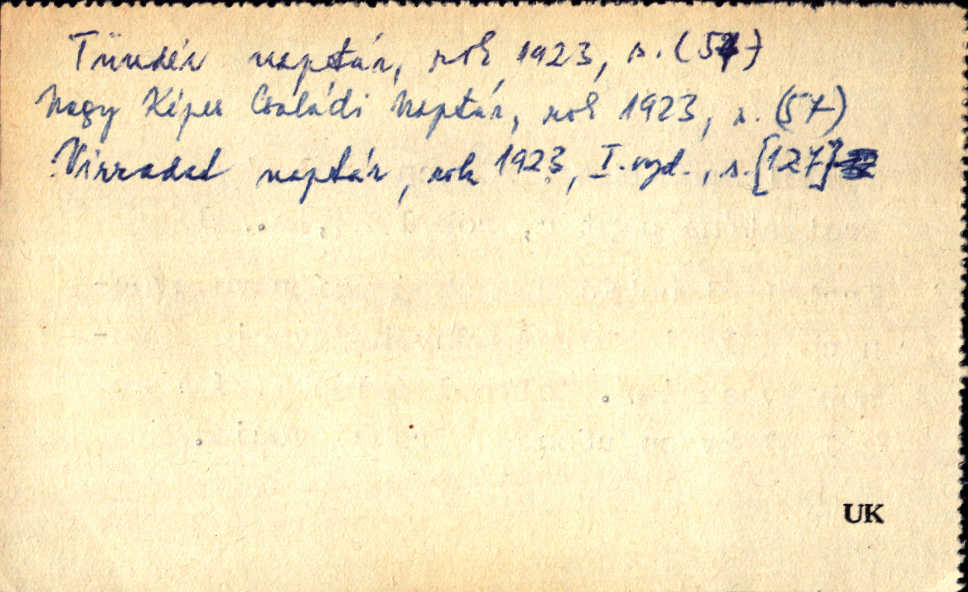 Tündér naptár, rok 1923, s. (57)
Nagy Képes Családi Naptár, rok 1923, s. (57)
Virradat naptár, rok 1923, I. vyd., s. [127]
UK